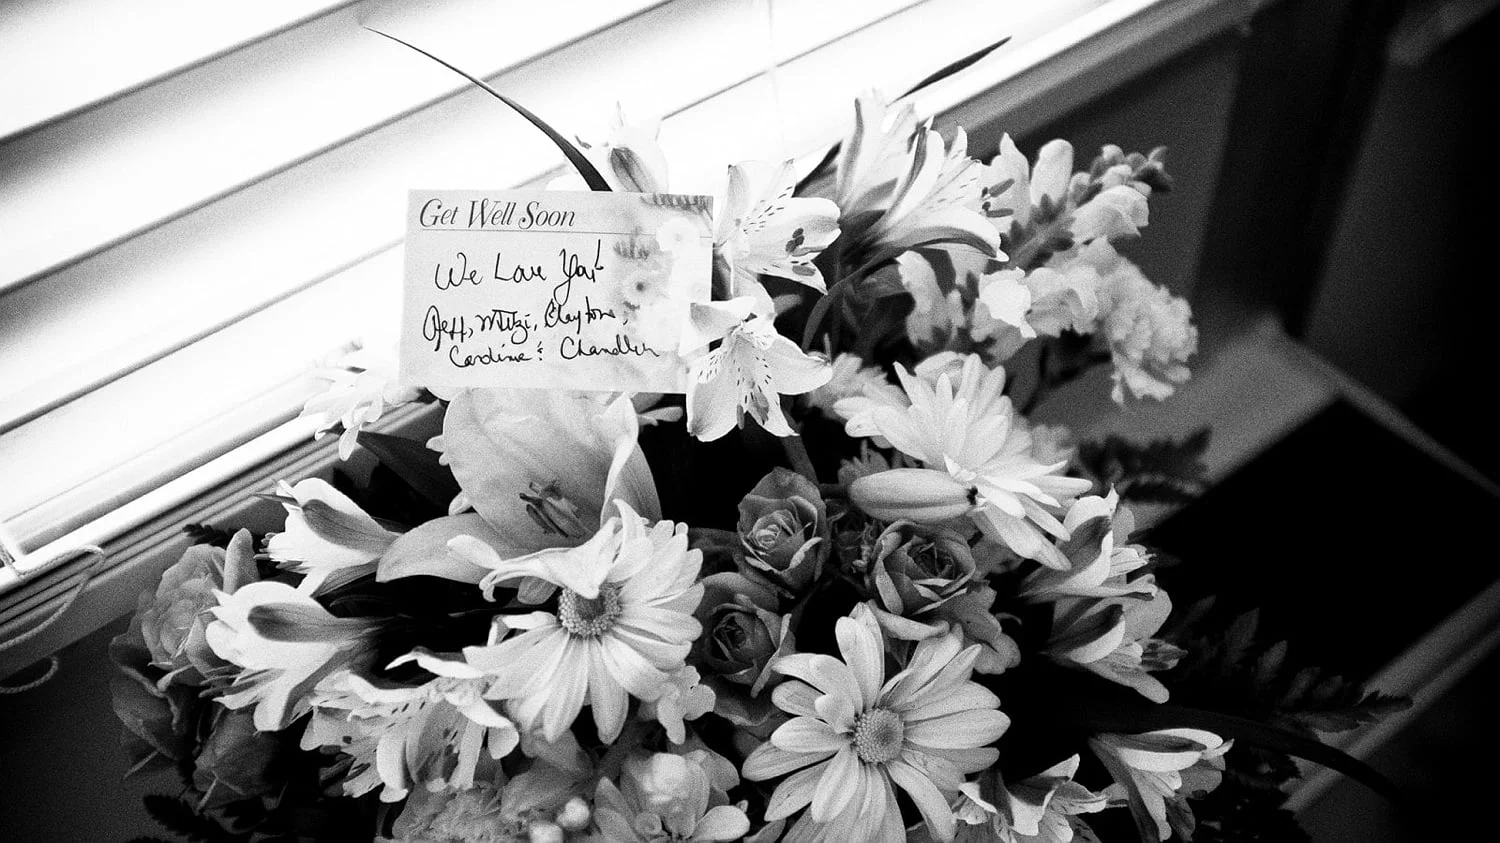 Get Well Soon
We Love You!
Jeff, Mitzi, Clayton,
Caroline & Chandler